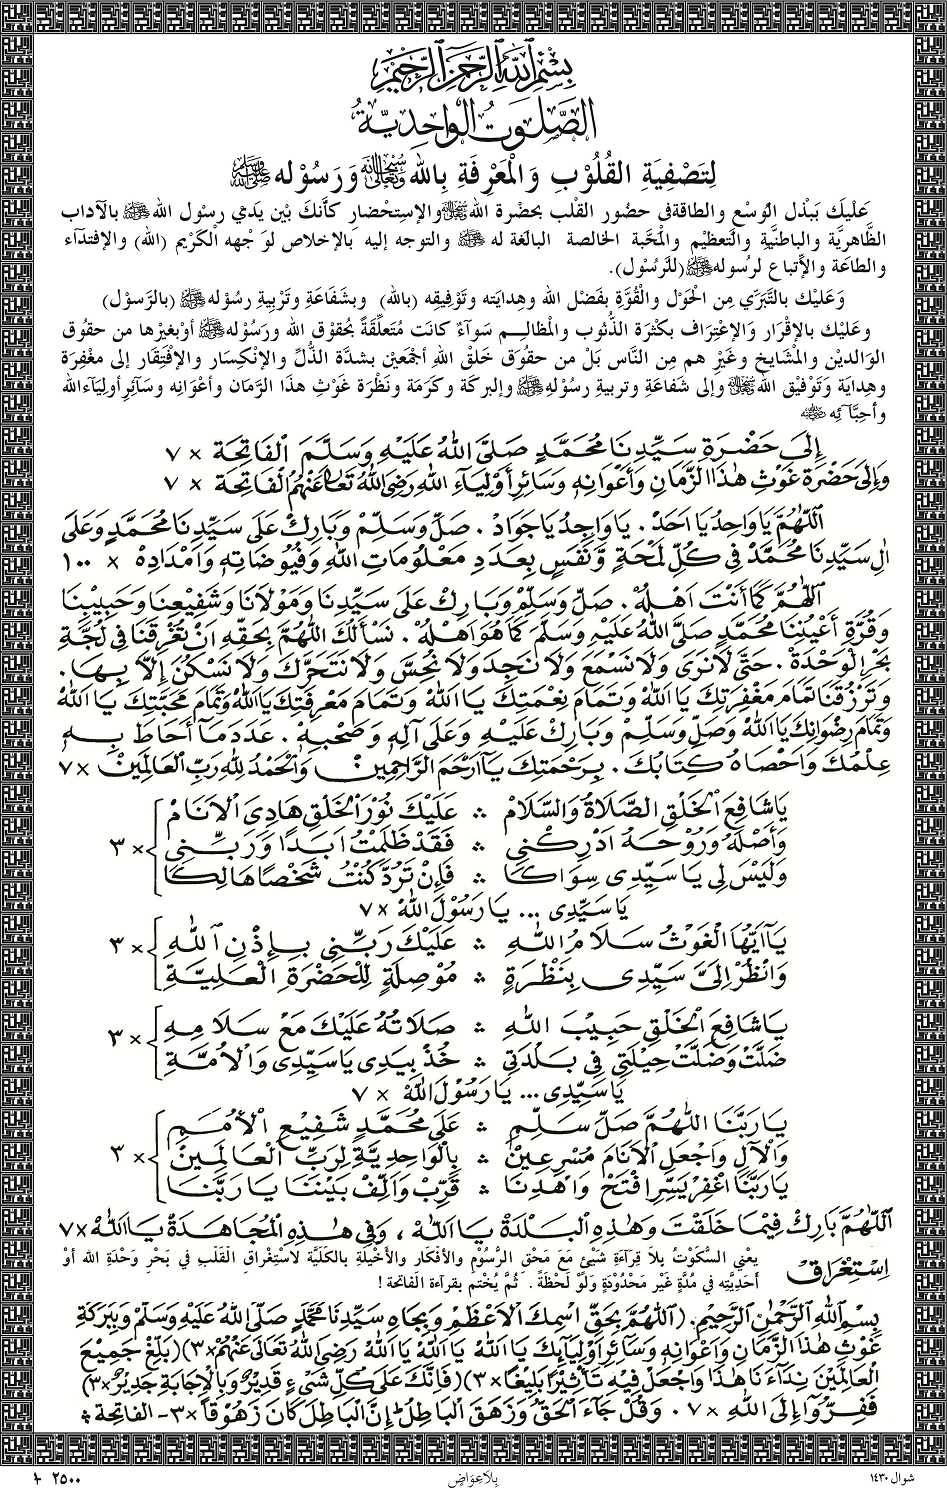 بِسْمِ اللهِ الرَّحْمٰنِ الرَّحِيْمِ
الصَّلَوَتُ الْوَاحِدِيَّةُ
لِتَصْفِيَةِ الْقُلُوْبِ وَالْمَعْرِفَةِ بِاللهِ سُبْحَانَهُ وَتَعَالَى وَرَسُوْلِهِ ﷺ
عَلَيْكَ بِبَذْلِ الْوُسْعِ وَالطَّاقَةِ فِى حُضُورِ الْقَلْبِ بِحَضْرَةِ اللهِ وَالإِسْتِحْضَارِ كَأَنَّكَ بَيْنَ يَدَيْ رَسُولِ اللهِ ﷺ بِالآدَابِ
الظَّاهِرِيَّةِ وَالْبَاطِنِيَّةِ وَالتَّعْظِيْمِ وَالْمَحَبَّةِ الْخَالِصَةِ الْبَالِغَةِ لَهُ ﷺ وَالتَّوَجُّهِ إِلَيْهِ بِالإِخْلَاصِ لِوَجْهِهِ الْكَرِيْمِ (للهِ) وَالإِقْتِدَآءِ
وَالطَّاعَةِ وَالإِتِّبَاعِ لِرَسُوْلِهِ ﷺ (لِلرَّسُوْلِ).
وَعَلَيْكَ بِالتَّبَرِّي مِنَ الْحَوْلِ وَالْقُوَّةِ بِفَضْلِ اللهِ وَهِدَايَتِهِ وَتَوْفِيْقِهِ (بِاللهِ) وَبِشَفَاعَةِ وَتَرْبِيَةِ رَسُوْلِهِ ﷺ (بِالرَّسُوْلِ)
وَعَلَيْكَ بِالإِقْرَارِ وَالإِعْتِرَافِ بِكَثْرَةِ الذُّنُوْبِ وَالْمَظَالِمِ سَوَآءٌ كَانَتْ مُتَعَلِّقَةً بِحُقُوْقِ اللهِ وَرَسُوْلِهِ ﷺ أَوْ بِغَيْرِهَا مِنْ حُقُوْقِ
الْوَالِدَيْنِ وَالْمَشَايِخِ وَغَيْرِهِمْ مِنَ النَّاسِ بَلْ مِنْ حُقُوْقِ خَلْقِ اللهِ أَجْمَعِيْنَ بِشِدَّةِ الذُّلِّ وَالإِنْكِسَارِ وَالإِفْتِقَارِ إِلَى مَغْفِرَةِ
وَهِدَايَةِ وَتَوْفِيْقِ اللهِ وَإِلَى شَفَاعَةِ وَتَرْبِيَةِ رَسُوْلِهِ ﷺ وَالْبَرَكَةِ وَكَرَمَةِ وَنَظْرَةِ غَوْثِ هٰذَا الزَّمَانِ وَأَعْوَانِهِ وَسَائِرِ أَوْلِيَآءِ اللهِ
وَأَحِبَّآئِهِ
إِلَى حَضْرَةِ سَيِّدِنَا مُحَمَّدٍ صَلَّى اللهُ عَلَيْهِ وَسَلَّمَ الْفَاتِحَةْ × ٧
وَإِلَى حَضْرَةِ غَوْثِ هٰذَا الزَّمَانِ وَأَعْوَانِهِ وَسَائِرِ أَوْلِيَآءِ اللهِ رَضِيَ اللهُ تَعَالَى عَنْهُمُ الْفَاتِحَةْ × ٧
اَللّٰهُمَّ يَا وَاحِدُ يَا اَحَدْ . يَا وَاجِدُ يَا جَوَادْ . صَلِّ وَسَلِّمْ وَبَارِكْ عَلَى سَيِّدِنَا مُحَمَّدٍ وَعَلَى
اٰلِ سَيِّدِنَا مُحَمَّدْ فِى كُلِّ لَمْحَةٍ وَّنَفَسٍ بِعَدَدِ مَعْلُوْمَاتِ اللهِ وَفُيُوْضَاتِهِ وَاَمْدَادِهْ × ١٠٠
اَللّٰهُمَّ كَمَا أَنْتَ اَهْلُهْ . صَلِّ وَسَلِّمْ وَبَارِكْ عَلَى سَيِّدِنَا وَمَوْلَانَا وَشَفِيْعِنَا وَحَبِيْبِنَا
وَقُرَّةِ أَعْيُنِنَا مُحَمَّدٍ صَلَّى اللهُ عَلَيْهِ وَسَلَّمَ كَمَا هُوَ اَهْلُهْ . نَسْأَلُكَ اللّٰهُمَّ بِحَقِّهِ اَنْ تُغْرِقَنَا فِى لُجَّةِ
بَحْرِ الْوَحْدَةْ . حَتَّى لَا نَرَى وَلَا نَسْمَعَ وَلَا نَجِدَ وَلَا نُحِسَّ وَلَا نَتَحَرَّكَ وَلَا نَسْكُنَ اِلَّا بِهَا .
وَتَرْزُقَنَا تَمَامَ مَغْفِرَتِكَ يَا اللهُ وَتَمَامَ نِعْمَتِكَ يَا اللهُ وَتَمَامَ مَعْرِفَتِكَ يَا اللهُ وَتَمَامَ مَحَبَّتِكَ يَا اللهُ
وَتَمَامَ رِضْوَانِكَ يَا اللهُ وَصَلِّ وَسَلِّمْ وَبَارِكْ عَلَيْهِ وَعَلَى آلِهِ وَصَحْبِهْ . عَدَدَ مَا أَحَاطَ بِهِ
عِلْمُكَ وَاَحْصَاهُ كِتَابُكَ . بِرَحْمَتِكَ يَآاَرْحَمَ الرَّاحِمِيْنَ وَالْحَمْدُ لِلّٰهِ رَبِّ الْعَالَمِيْنَ × ٧
يَا شَافِعَ الْخَلْقِ الصَّلَاةُ وَالسَّلَامْ ؞ عَلَيْكَ نُوْرَ الْخَلْقِ هَادِيَ الْاَنَامْ
وَأَصْلَهُ وَرُوْحَهُ اَدْرِكْنِى ؞ فَقَدْ ظَلَمْتُ اَبَدًا وَرَبِّنِى
وَلَيْسَ لِى يَا سَيِّدِى سِوَاكَا ؞ فَاِنْ تَرُدَّ كُنْتُ شَخْصًا هَالِكَا
× ٣
يَا سَيِّدِى ... يَا رَسُوْلَ اللهْ × ٧
يَآاَيُّهَا الْغَوْثُ سَلَامُ اللهِ ؞ عَلَيْكَ رَبِّنِى بِاِذْنِ اللهِ
وَانْظُرْ اِلَيَّ سَيِّدِى بِنَظْرَةٍ ؞ مُوْصِلَةٍ لِلْحَضْرَةِ الْعَلِيَّةِ
× ٣
يَا شَافِعَ الْخَلْقِ حَبِيْبَ اللهِ ؞ صَلَاتُهُ عَلَيْكَ مَعْ سَلَامِهِ
ضَلَّتْ وَضَلَّتْ حِيْلَتِى فِى بَلْدَتِى ؞ خُذْ بِيَدِى يَا سَيِّدِى وَالْاُمَّةِ
× ٣
يَا سَيِّدِى ... يَا رَسُوْلَ اللهْ × ٧
يَا رَبَّنَا اللّٰهُمَّ صَلِّ سَلِّمِ ؞ عَلَى مُحَمَّدٍ شَفِيْعِ الْاُمَمِ
وَالْآلِ وَاجْعَلِ الْاَنَامَ مُسْرِعِيْنَ ؞ بِالْوَاحِدِيَّةِ لِرَبِّ الْعَالَمِيْنَ
يَا رَبَّنَا اغْفِرْ يَسِّرِ افْتَحْ وَاهْدِنَا ؞ قَرِّبْ وَاَلِّفْ بَيْنَنَا يَا رَبَّنَا
× ٣
اَللّٰهُمَّ بَارِكْ فِيْمَا خَلَقْتَ وَهٰذِهِ الْبَلْدَةْ يَا اَللهْ ، وَفِى هٰذِهِ الْمُجَاهَدَةْ يَا اَللهْ × ٧
اِسْتِغْرَاقْ يَعْنِي السُّكُوْتُ بِلَا قِرَآءَةِ شَيْئٍ مَعَ مَحْقِ الرُّسُوْمِ وَالأَفْكَارِ وَالأَخْيِلَةِ بِالْكُلِّيَّةِ لِاسْتِغْرَاقِ الْقَلْبِ فِي بَحْرِ وَحْدَةِ اللهِ أَوْ
أَحَدِيَّتِهِ فِي مُدَّةٍ غَيْرِ مَحْدُوْدَةٍ وَلَوْ لَحْظَةً . ثُمَّ يُخْتَمُ بِقِرَآءَةِ الْفَاتِحَةْ !
بِسْمِ اللهِ الرَّحْمٰنِ الرَّحِيْمِ. (اَللّٰهُمَّ بِحَقِّ اسْمِكَ الْاَعْظَمِ وَبِجَاهِ سَيِّدِنَا مُحَمَّدٍ صَلَّى اللهُ عَلَيْهِ وَسَلَّمَ وَبِبَرَكَةِ
غَوْثِ هٰذَا الزَّمَانِ وَاَعْوَانِهِ وَسَآئِرِ اَوْلِيَآئِكَ يَا اَللهُ يَا اَللهُ يَا اَللهُ رَضِيَ اللهُ تَعَالَى عَنْهُمْ × ٣) (بَلِّغْ جَمِيْعَ
الْعَالَمِيْنَ نِدَآءَنَا هٰذَا وَاجْعَلْ فِيْهِ تَأْثِيْرًا بَلِيْغًا × ٣) (فَاِنَّكَ عَلَى كُلِّ شَيْءٍ قَدِيْرٌ وَبِالْاِجَابَةِ جَدِيْرٌ × ٣)
فَفِرُّوْا اِلَى اللهِ × ٧ . وَقُلْ جَآءَ الْحَقُّ وَزَهَقَ الْبَاطِلُ اِنَّ الْبَاطِلَ كَانَ زَهُوْقًا × ٣ - الفَاتِحَةْ
شوال ١٤٣٠
بِلَا عِوَاضٍ
٢٥٠٠